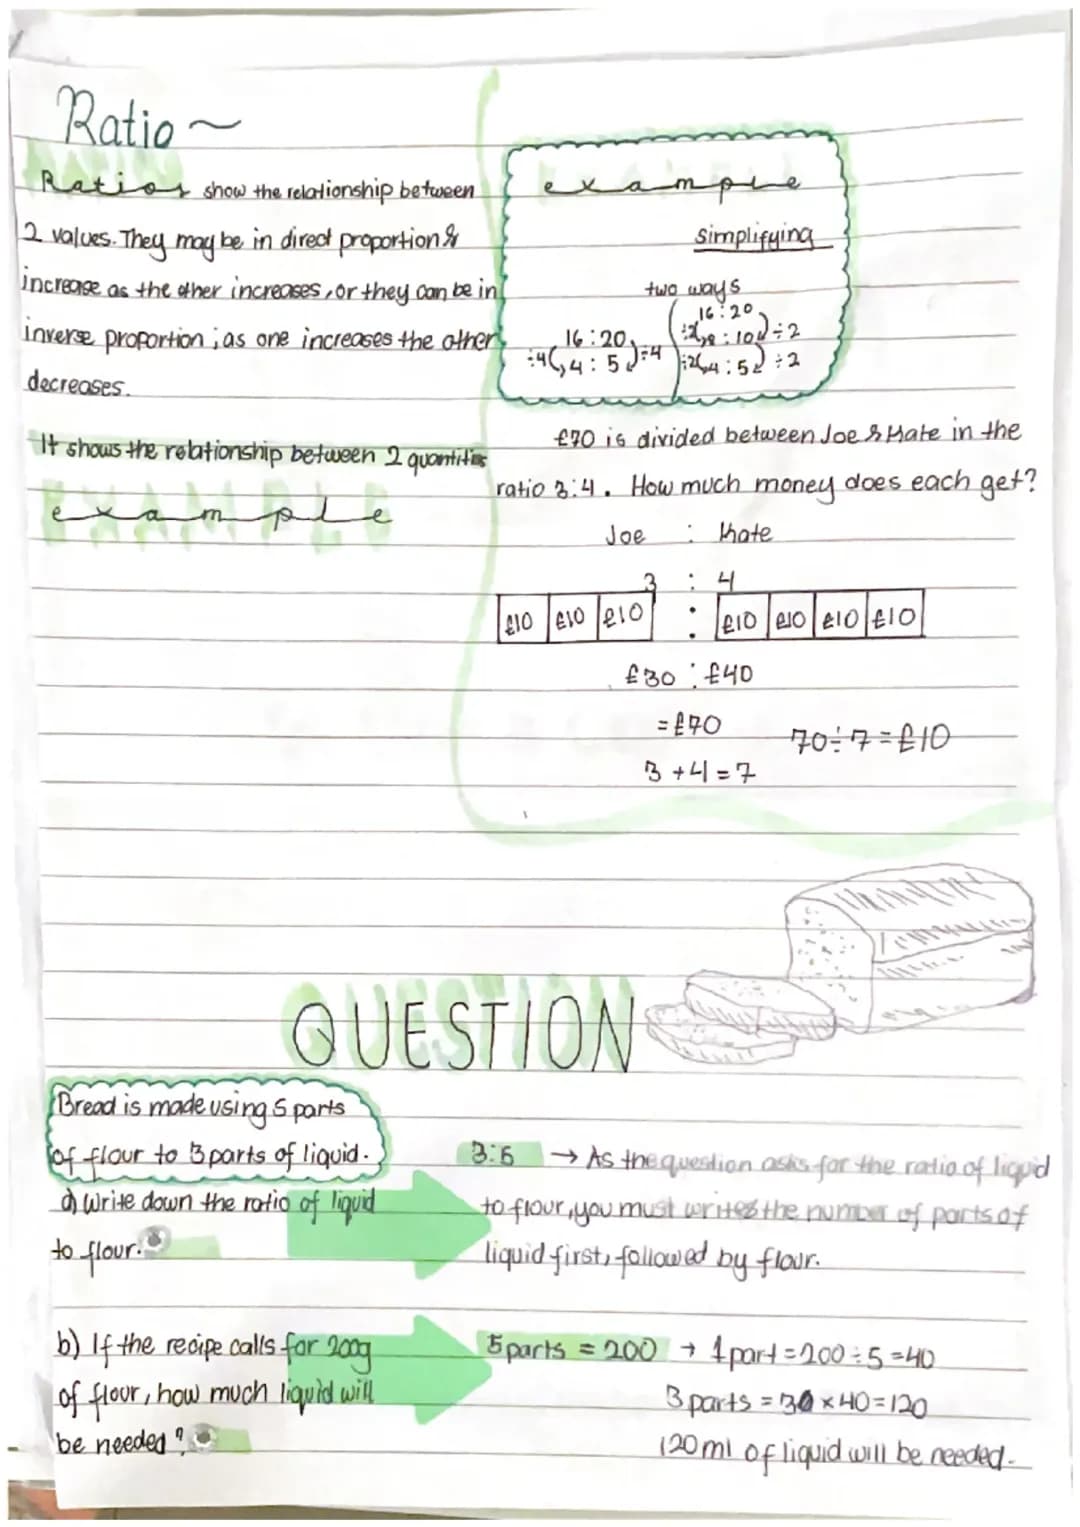 Ratio ~
Ratios show the relationship between
2 values. They may be in direct proportion &
increase as the other increases, or they can be in
inverse proportion; as one increases the other
decreases.
It shows the relationship between 2 quantities
example
example
simplifying
two ways
16:20
÷4 ( 4:5 ) ÷4
16:20
÷2 ( 8:10 ) ÷2
÷2 ( 4:5 ) ÷2
£70 is divided between Joe & Kate in the
ratio 3:4. How much money does each get?
Joe : Kate
3 : 4
£10 £10 £10 : £10 £10 £10 £10
£30 : £40
= £70
70÷7=£10
3+4=7
QUESTION
Bread is made using 5 parts
of flour to 3 parts of liquid.
a) Write down the ratio of liquid
to flour.
3:5 → As the question asks for the ratio of liquid
to flour, you must writes the number of parts of
liquid first, followed by flour.
b) If the recipe calls for 200g
of flour, how much liquid will
be needed?
5 parts = 200 → 1 part = 200÷5=40
3 parts = 3 ×40=120
120ml of liquid will be needed.